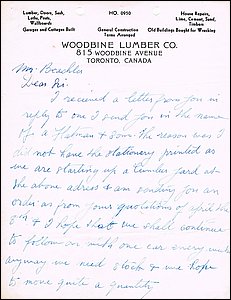 Lumber, Doors, Sash,
Laths, Posts,
Wallboards
Garages and Cottages Built
HO. 0950
General Construction
Terms Arranged
House Repairs,
Lime, Cement, Sand,
Timbers
Old Buildings Bought for Wrecking
WOODBINE LUMBER CO.
815 WOODBINE AVENUE
TORONTO, CANADA
Mr.
Dear Sir
I received a letter from you in
reply to one I send you in the name
of a & Sons. The reason was I
did not have the stationery printed as
we are starting up a lumber yard at
the above adress & am sending you an
order as from your quotations of april the
& I hope that we shall continue
to follow on with one car every week
anyway we need stock & we hope
to move quite a quantity